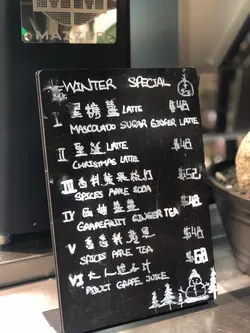 MAZZER
WINTER SPECIAL
I 黑糖薑 LATTE $48
MASCOLADO SUGAR GINGER LATTE
II 聖誕 LATTE $48
CHRISTMAS LATTE
III 香料蘋果梳打 $52
SPICES APPLE SODA
IV 西柚薑茶 $48
GRAPEFRUIT GINGER TEA
V 香料蘋果茶 $48
SPICES APPLE TEA
VI 大人提子汁 $68
ADULT GRAPE JUICE